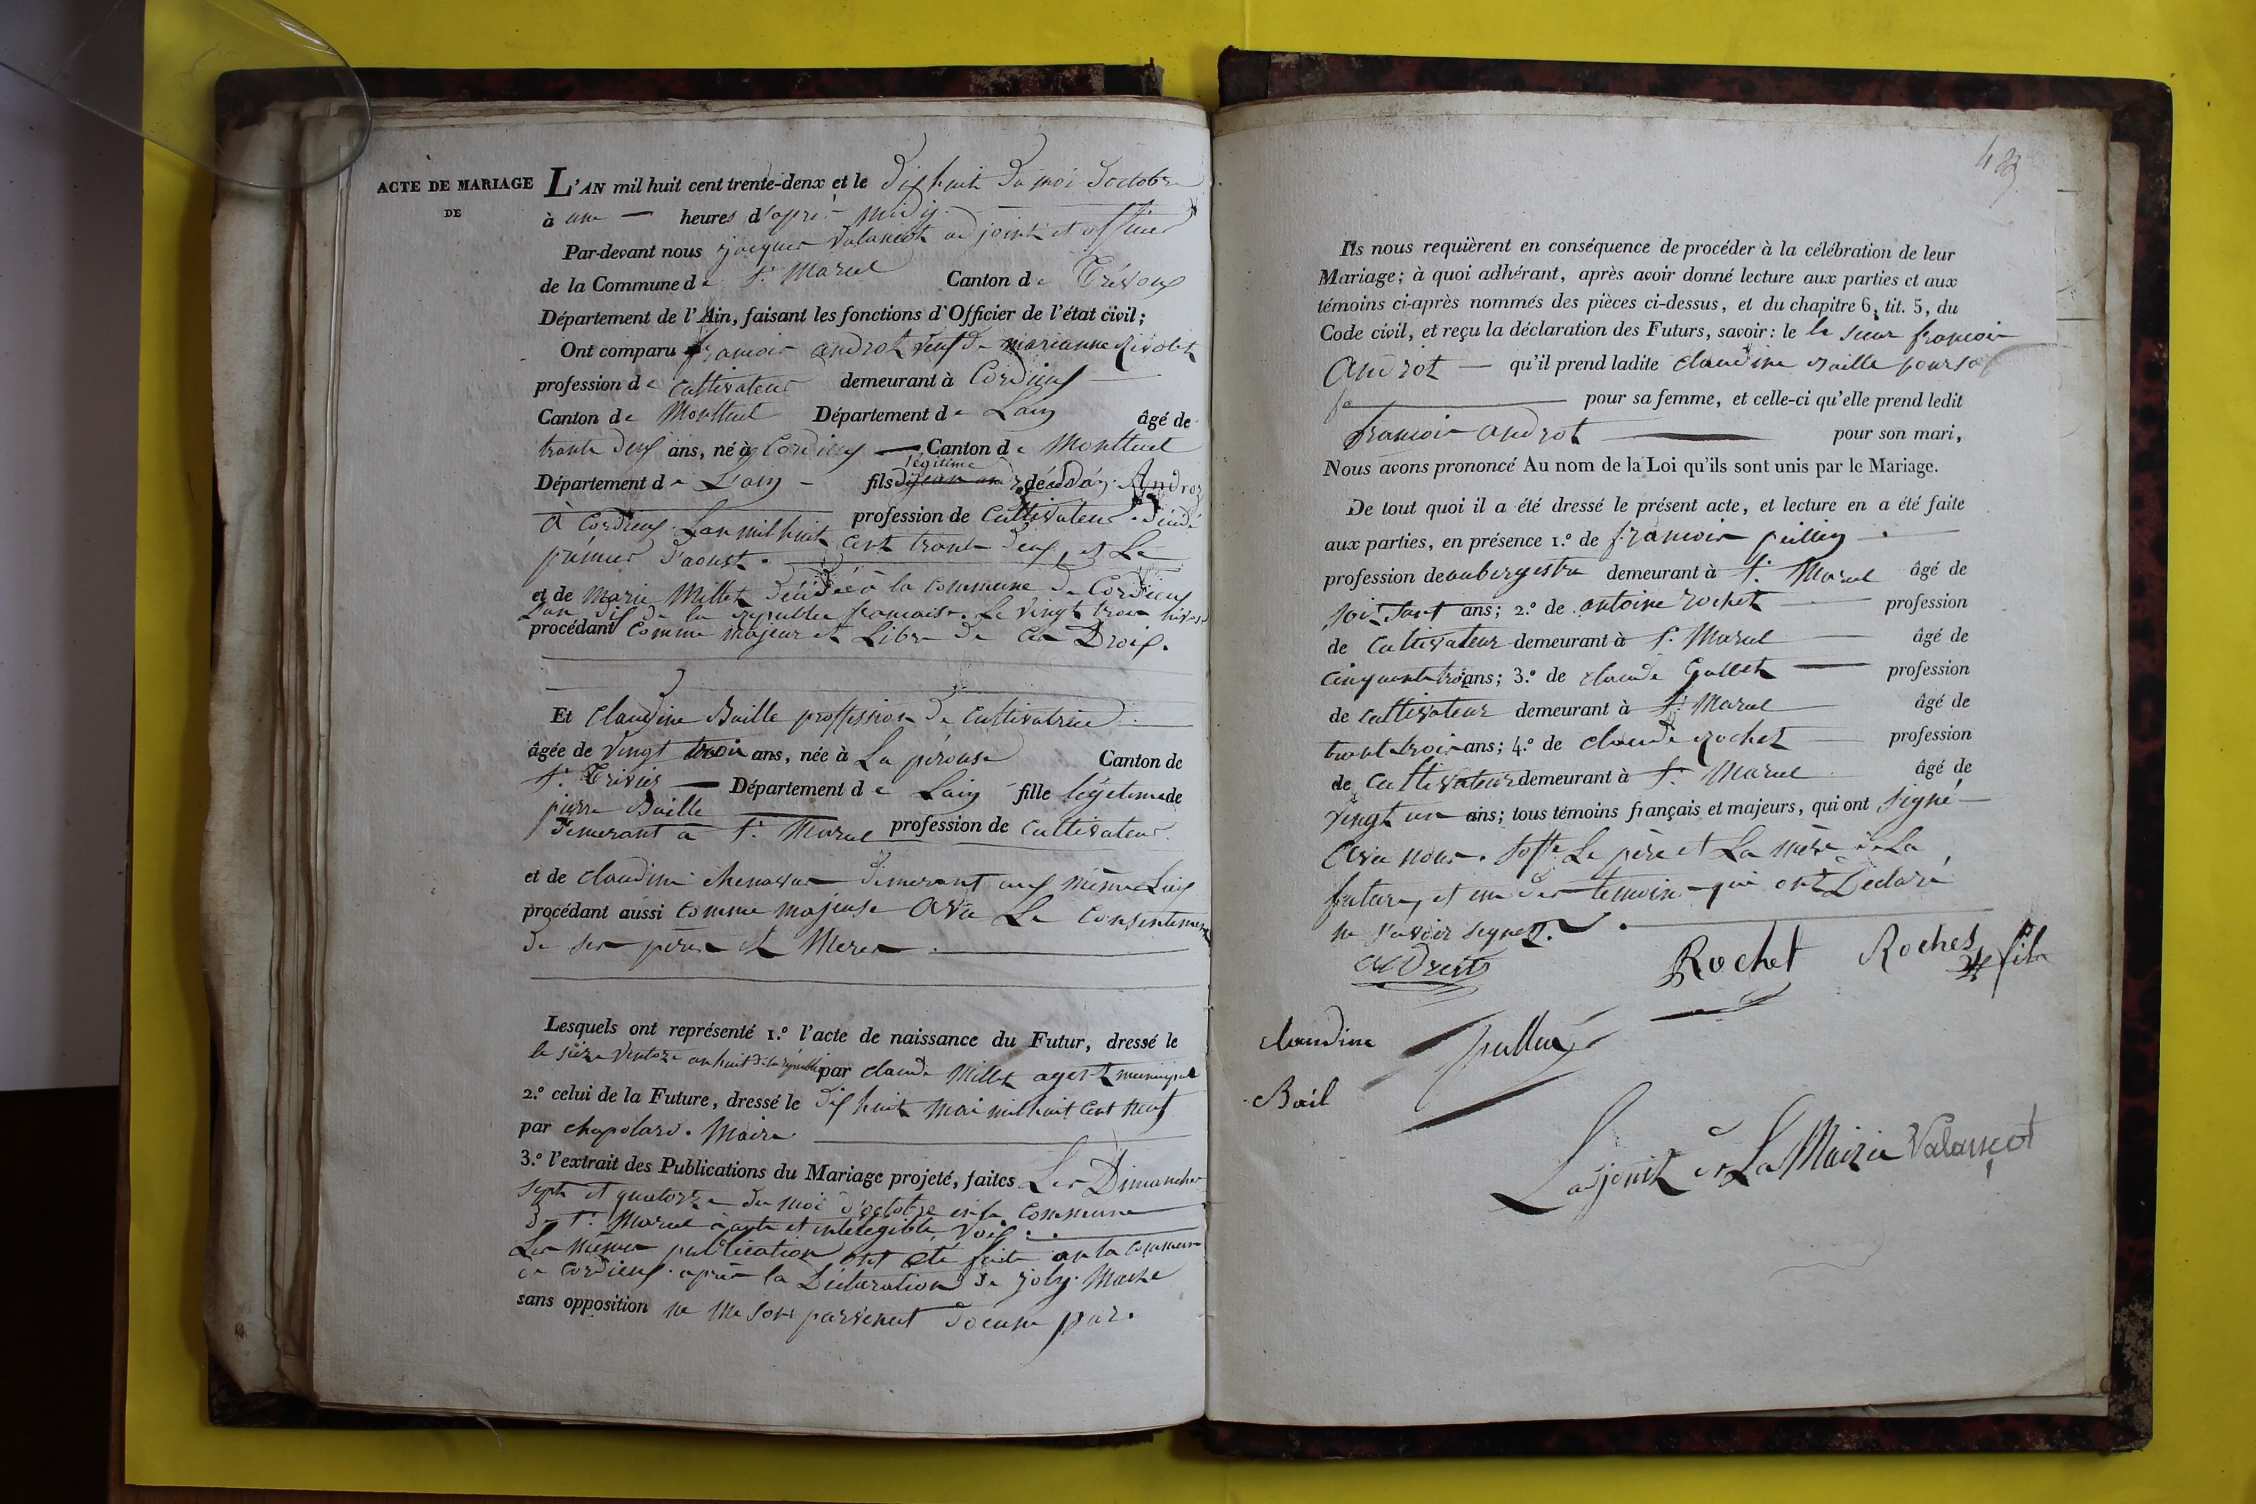 ACTE DE MARIAGE
DE
L'AN mil huit cent trente-deux et le dix huit du moi doctobre
à une heures d'après midy
Par-devant nous jacques Valancot adjoint et officier
de la Commune de St Marcel Canton de Trévoux
Département de l'Ain, faisant les fonctions d'Officier de l'état civil;
Ont comparu francois androt veuf de marianne
profession de cultivateur demeurant à Cordieux
Canton de Montluel Département de Lain âgé de
trante deux ans, né à Cordieux Canton de Montluel
légitime
Département de Lain fils de Androt
profession de cultivateur décédé
à Cordieux Lan mil huit cent trante deux, et Le
prémier d'aoust.
et de Marie Millet décédée à la commune de Cordieux
Lan dix de la republic francaise. Le vingt trois
procédant comme majeur et Libre de ces Droix.
Et claudine Baille proffession de cultivatrice
âgée de vingt trois ans, née à La pérouse Canton de
St Trivier Département de Lain fille légitime de
pierre Baille
demerant a St Marcel profession de cultivateur
et de claudine chenavas demerant aux même Lieu
procédant aussi comme majeuse avec Le consentement
de ses père et Meres.
Lesquels ont représenté 1.º l'acte de naissance du Futur, dressé le
le seize ventoze an huit de la républic par claude Millet agent municipal
2.º celui de la Future, dressé le dix huit mai mil huit cent neuf
par chapolard. Maire
3.º l'extrait des Publications du Mariage projeté, faites Les Dimanches
sept et quatorze du moi d'octobre en la commune
de St Marcel à aute et intelegible voix.
Les mêmes publication ont été faite an la commune
de Cordieux après la Déclaration de joly Maire
sans opposition ne me sont parvenut d'ocune par.
Ils nous requièrent en conséquence de procéder à la célébration de leur
Mariage; à quoi adhérant, après avoir donné lecture aux parties et aux
témoins ci-après nommés des pièces ci-dessus, et du chapitre 6, tit. 5, du
Code civil, et reçu la déclaration des Futurs, savoir: le le sieur francois
Androt qu'il prend ladite claudine Baille pour sa
fe pour sa femme, et celle-ci qu'elle prend ledit
francois androt pour son mari,
Nous avons prononcé Au nom de la Loi qu'ils sont unis par le Mariage.
De tout quoi il a été dressé le présent acte, et lecture en a été faite
aux parties, en présence 1.º de francois
profession de aubergiste demeurant à St Marcel âgé de
soissant ans; 2.º de antoine rochet profession
de cultivateur demeurant à St Marcel âgé de
cinquante trois ans; 3.º de claude Gallet profession
de cultivateur demeurant à St Marcel âgé de
trante trois ans; 4.º de claude rochet profession
de cultivateur demeurant à St Marcel âgé de
vingt un ans; tous témoins français et majeurs, qui ont signé
avec nous. soffe Le père et La mère de La
future, et un des temoin qui ont Déclaré
ne savoir signer.
Rochet
Rochet fils
claudine
Bail
L'adjoint de La Mairie Valançot